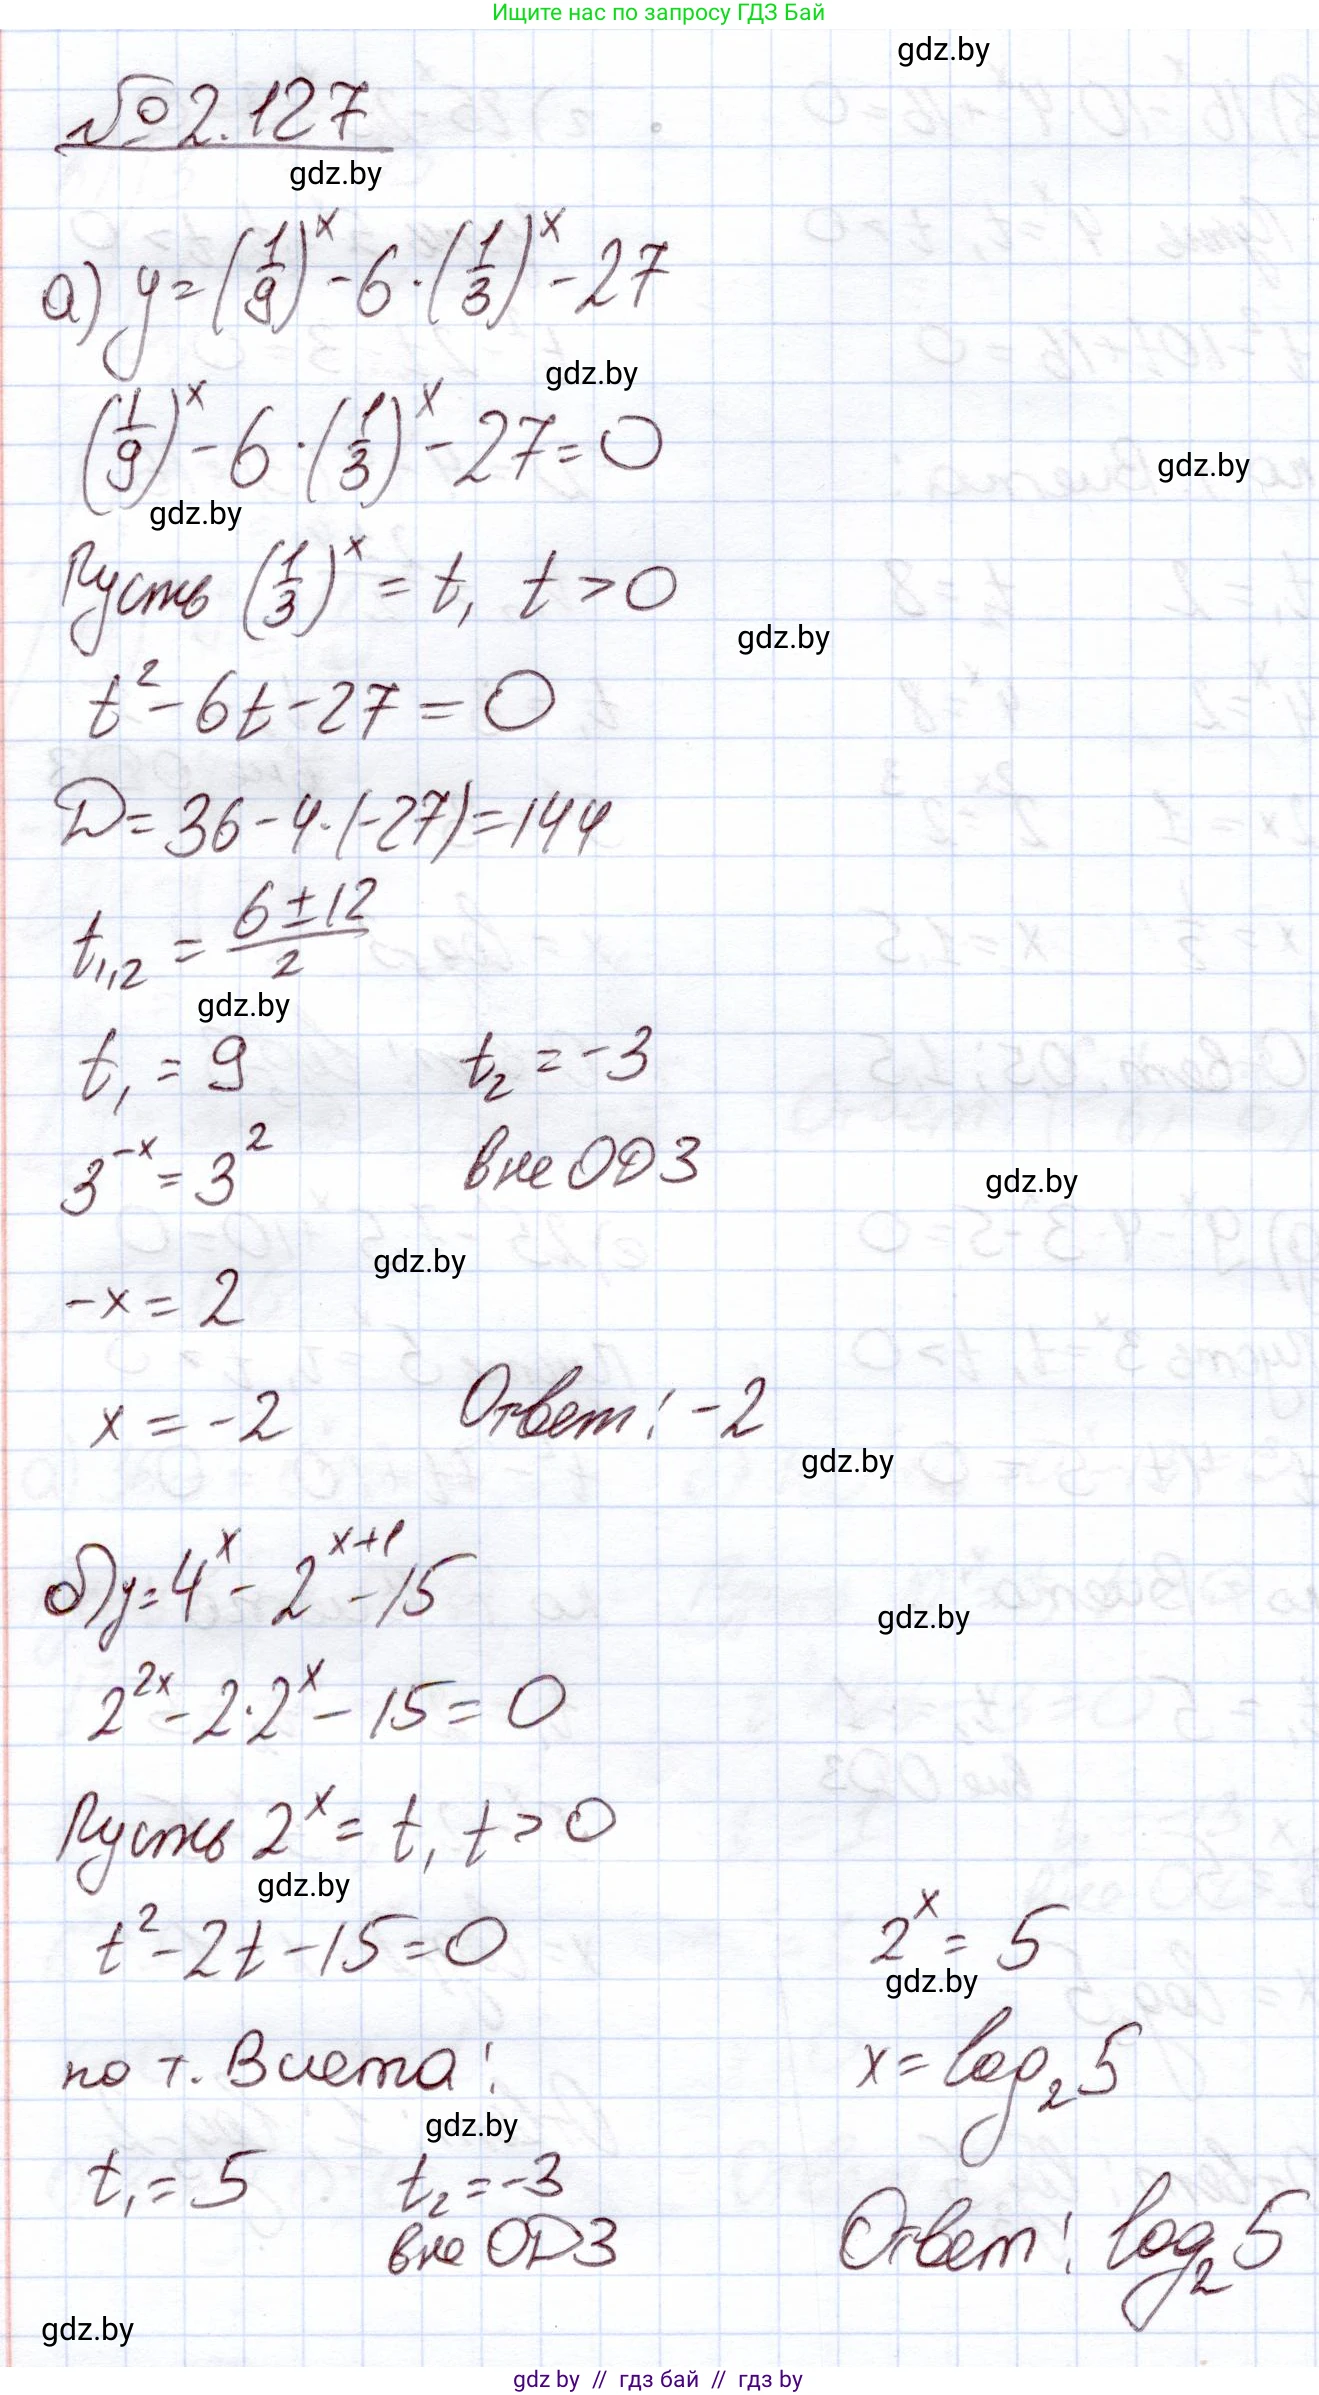 Ищите нас по запросу ГДЗ Бай
gdz.by
№ 2.127
gdz.by
а) y = (1/9)^x - 6 · (1/3)^x - 27
gdz.by
(1/9)^x - 6 · (1/3)^x - 27 = 0
gdz.by
gdz.by
Пусть (1/3)^x = t, t > 0
gdz.by
t² - 6t - 27 = 0
D = 36 - 4 · (-27) = 144
t₁,₂ = (6 ± 12)/2
gdz.by
t₁ = 9 t₂ = -3
3^(-x) = 3² вне ОДЗ
gdz.by
gdz.by
-x = 2
x = -2 Ответ: -2
gdz.by
б) y = 4^x - 2^(x+1) - 15
gdz.by
2^(2x) - 2 · 2^x - 15 = 0
Пусть 2^x = t, t > 0
gdz.by
t² - 2t - 15 = 0
по т. Виета:
gdz.by
t₁ = 5 t₂ = -3
вне ОДЗ
2^x = 5
gdz.by
x = log₂ 5
Ответ: log₂ 5
gdz.by
gdz by // гдз бай // гдз by